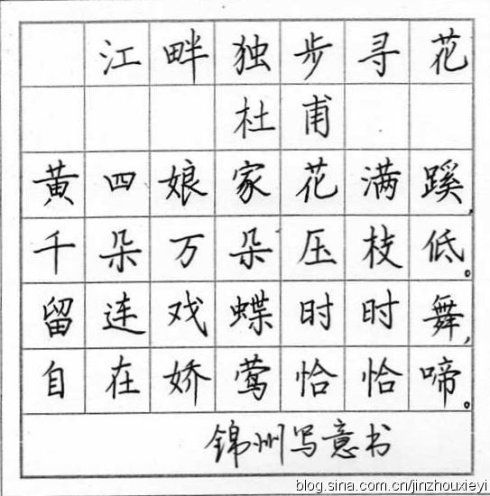 江畔独步寻花
杜甫
黄四娘家花满蹊,
千朵万朵压枝低。
留连戏蝶时时舞,
自在娇莺恰恰啼。
锦州写意书
blog.sina.com.cn/jinzhouxieyi